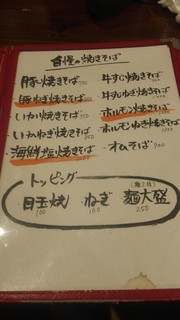 自慢の焼きそば
豚焼きそば
豚ねぎ焼きそば
いか焼きそば
いかねぎ焼きそば
海鮮塩焼きそば
牛すじ焼きそば
牛すじねぎ焼きそば
ホルモン焼きそば
ホルモンねぎ焼きそば
オムそば
トッピング
目玉焼 100
ねぎ 100
麺大盛 250